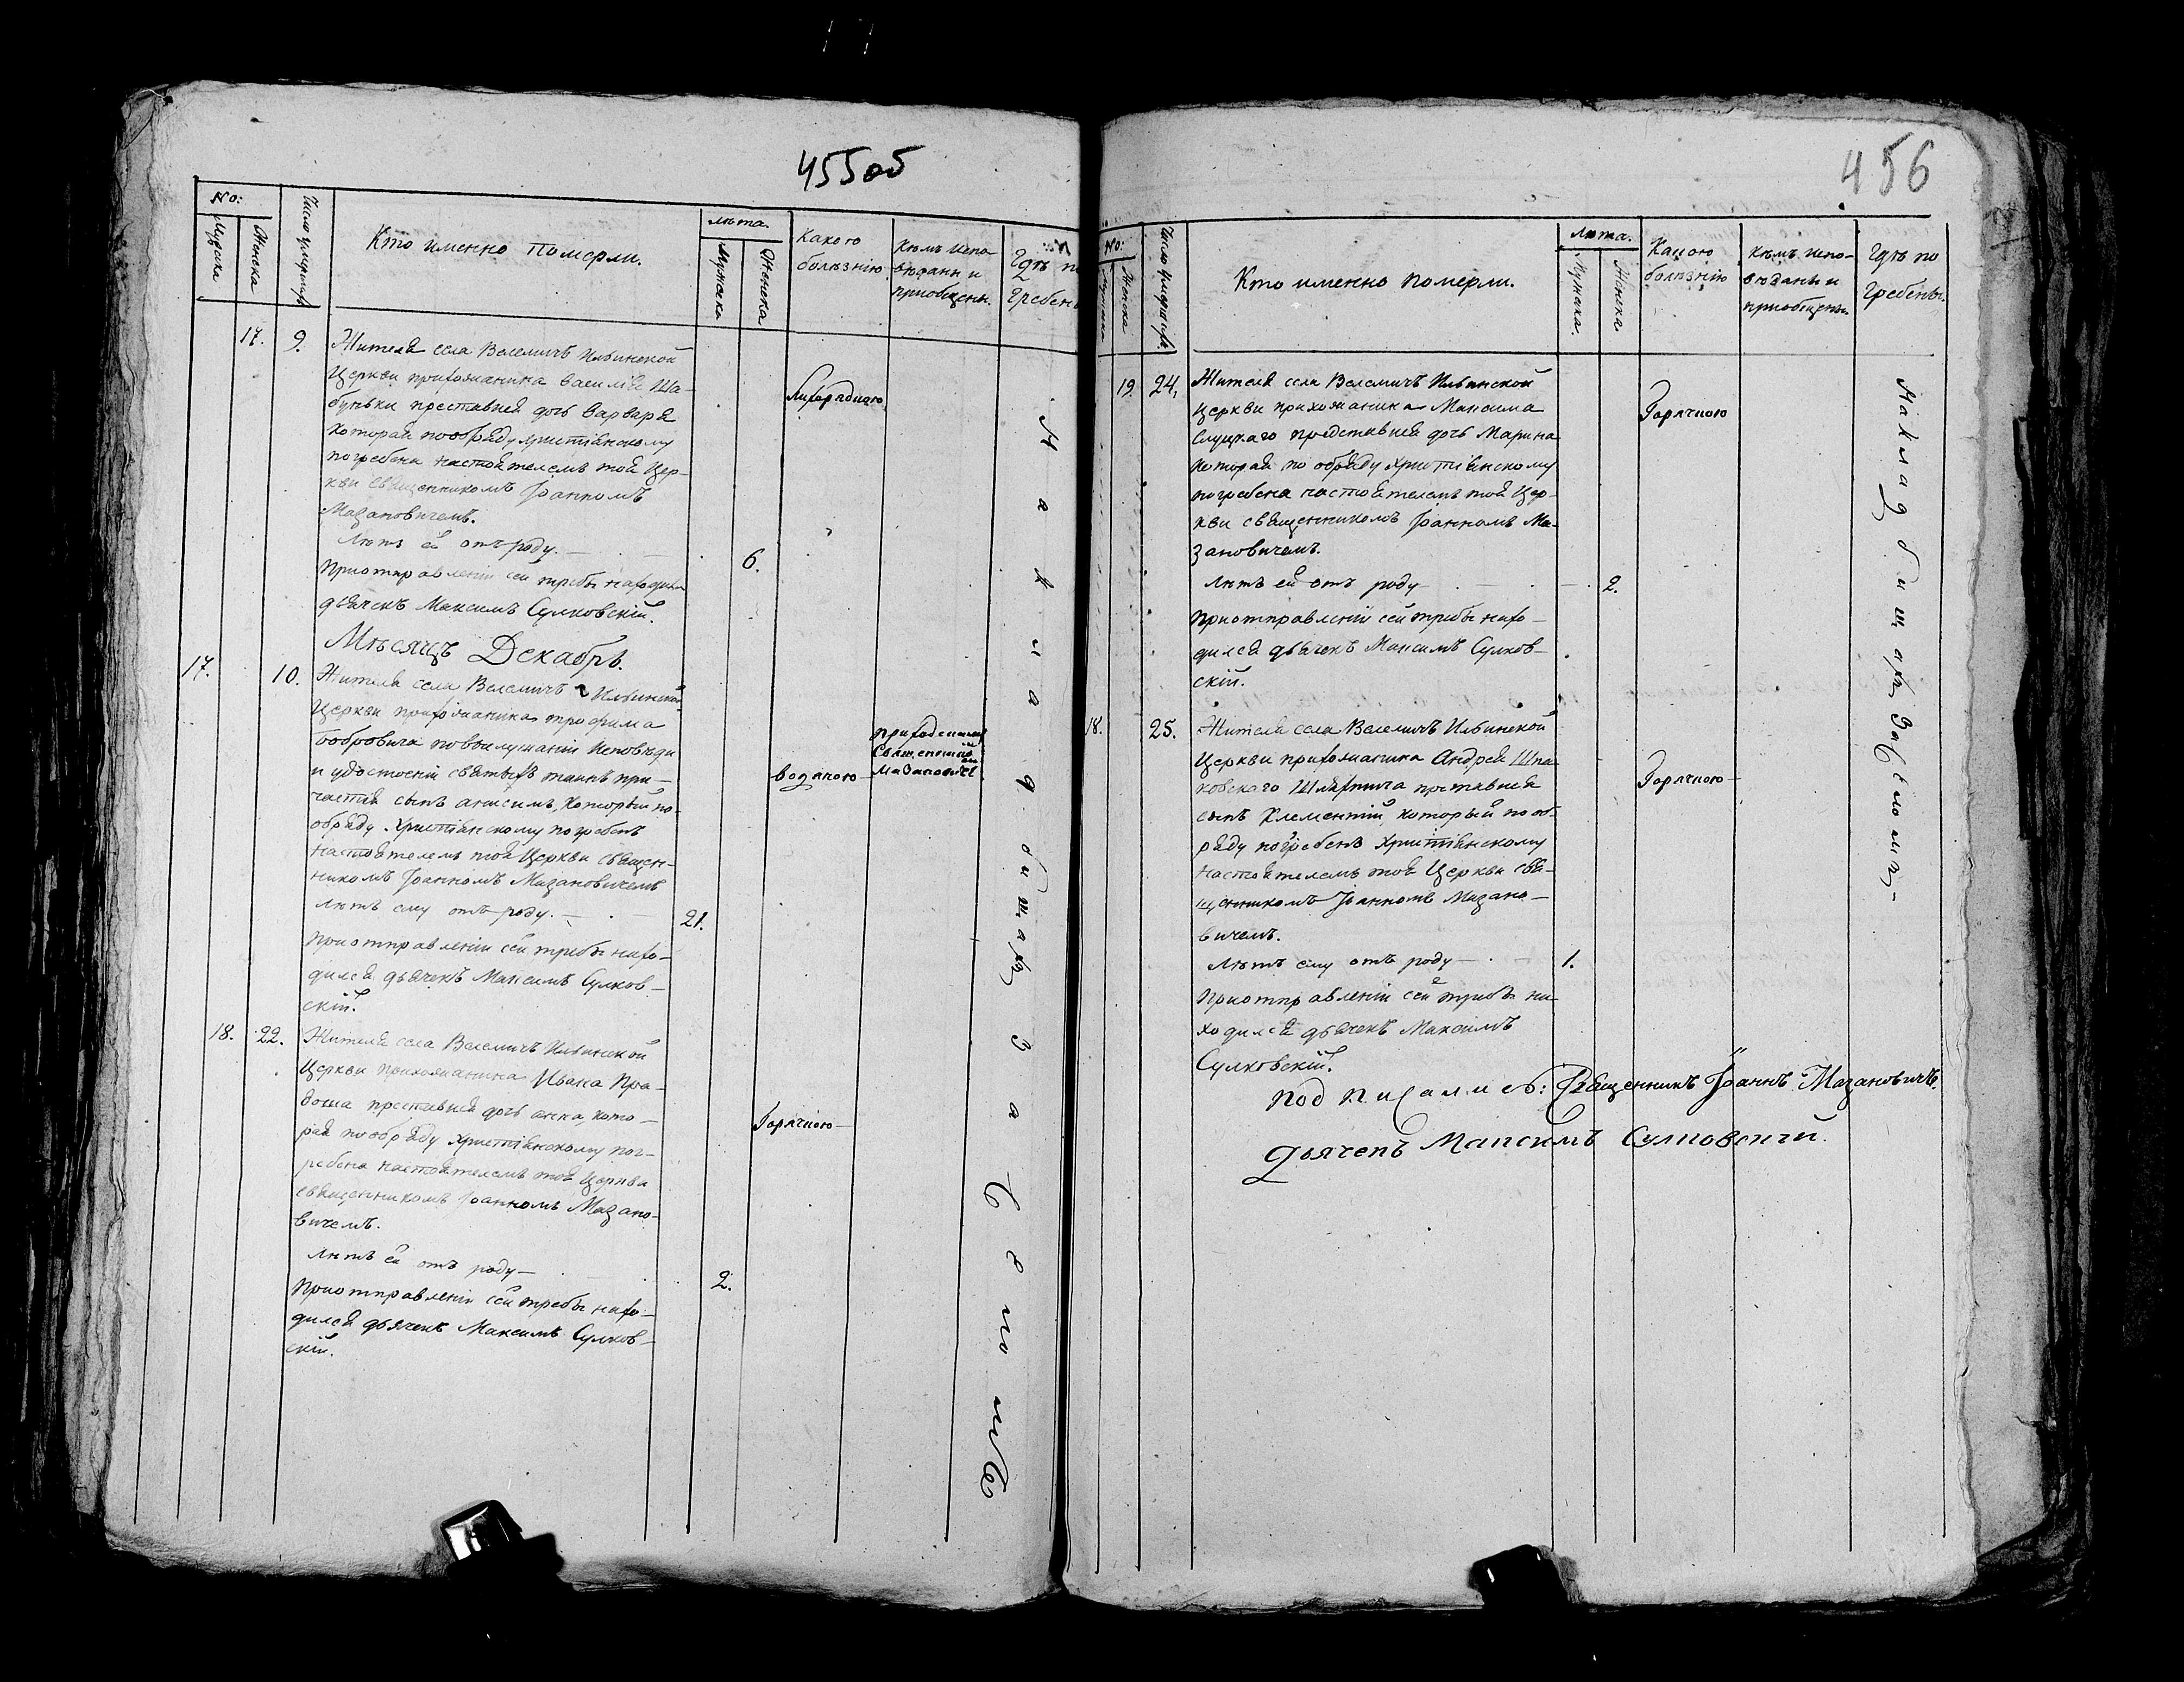 455об
No:
Мужска
Женска
Число умершихъ
Кто именно померли.
лѣта.
Мужска
Женска
Какою
болѣзнію
Кѣмъ испо-
вѣданы и
приобщены.
Гдѣ по
гребены
17. 9.
Жителя села Велемичъ Ильинской
Церкви прихожанина василія Ша-
буньки преставися дочь варвара
которая пообряду христіянскому
погребена настоятелемъ тоя Цер-
кви Священникомъ Іоанномъ
Мазановичемъ.
Лѣтъ ей отъ роду. — 6.
Лихорадкою
Приотправленіи сей требы находился
дьячекъ Максимъ Сулковскій.
Мѣсяцъ Декабрь.
17. 10.
Жителя села Велемичъ Ильинской
Церкви прихожанина трофима
бобровича повыслушаніи исповѣди
и удостоеніи святыхъ таинъ при-
частія сынъ анисимъ, который по-
обряду Христіянскому погребенъ
настоятелемъ тоя Церкви священ-
никомъ Іоанномъ Мазановичемъ
лѣтъ ему отъ роду. — 21.
водяною
приходскимъ
Священникомъ
Мазановичемъ
Приотправленіи сей требы нахо-
дился дьячекъ Максимъ Сулков-
скій.
18. 22.
Жителя села Велемичъ Ильинской
Церкви прихожанина Ивана
преставися дочь анна, кото-
рая пообряду Христіянскому пог-
ребена настоятелемъ тоя Церкви
священникомъ Іоанномъ Мазано-
вичемъ.
лѣтъ ей отъ роду — 2.
Горячкою
Приотправленіи сей требы нахо-
дился дьячекъ Максимъ Сулков-
скій.
На кладбищахъ Завело мъ
456
No:
Мужска
Женска
Число умершихъ
Кто именно померли.
лѣта.
Мужска.
Женска.
Какою
болѣзнію
Кѣмъ испо-
вѣданы и
приобщены
Гдѣ по
гребены.
19. 24.
Жителя села Велемичъ Ильинской
церкви прихожанина Максима
Слуцкаго представися дочь Марина
которая по обряду Христіянскому
погребена настоятелемъ тоя Цер-
кви священникомъ Іоанномъ Ма-
зановичемъ.
лѣтъ ей отъ роду — 2.
Горячкою
Приотправленіи сей требы нахо-
дился дьячекъ Максимъ Сулков-
скій.
18. 25.
Жителя села Велемичъ Ильинской
Церкви прихожанина Андрея Шпа
ковскаго Шляхтича преставися
сынъ Клементій, который по об-
ряду погребенъ Христіянскому
настоятелемъ тоя Церкви свя-
щенникомъ Іоанномъ Мазано-
вичемъ.
Лѣтъ ему отъ роду — 1.
Горячкою
Приотправленіи сей требы на-
ходился дьячекъ Максимъ
Сулковскій.
На кладбищахъ
Подписались: Священникъ Іоаннъ Мазановичъ.
Дьячекъ Максимъ Сулковскій.